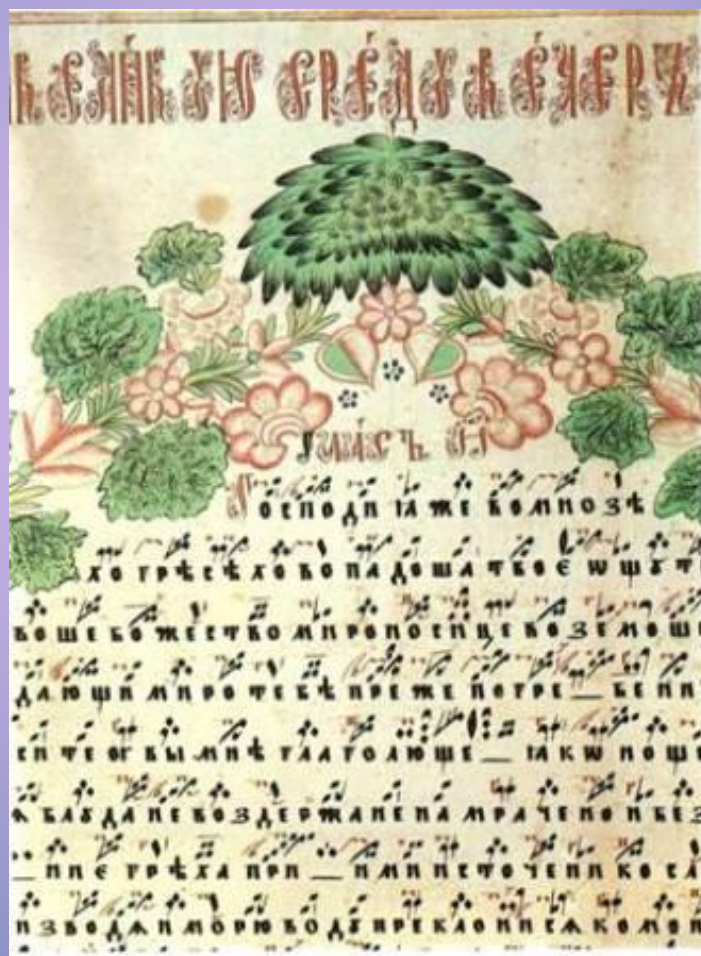 ВЕЛИ́КꙊЮ СРЕ́ДꙊ ВЕ́ЧЕРЪ
гласъ и҃
Господи ꙗже во мнозѣ
хо грѣсѣхо вопадоша твоє ѡщꙋт
воше божество мироносице воземоше
дающи миро тебѣ преже погре — бени
мнѣ глаголюше — ꙗкѡ ноше
блꙋда невоздержанена мрачено и без
— ниє грѣха при — ими источенико сл
изводѧи морю водꙋ преклонисѧ ко мои